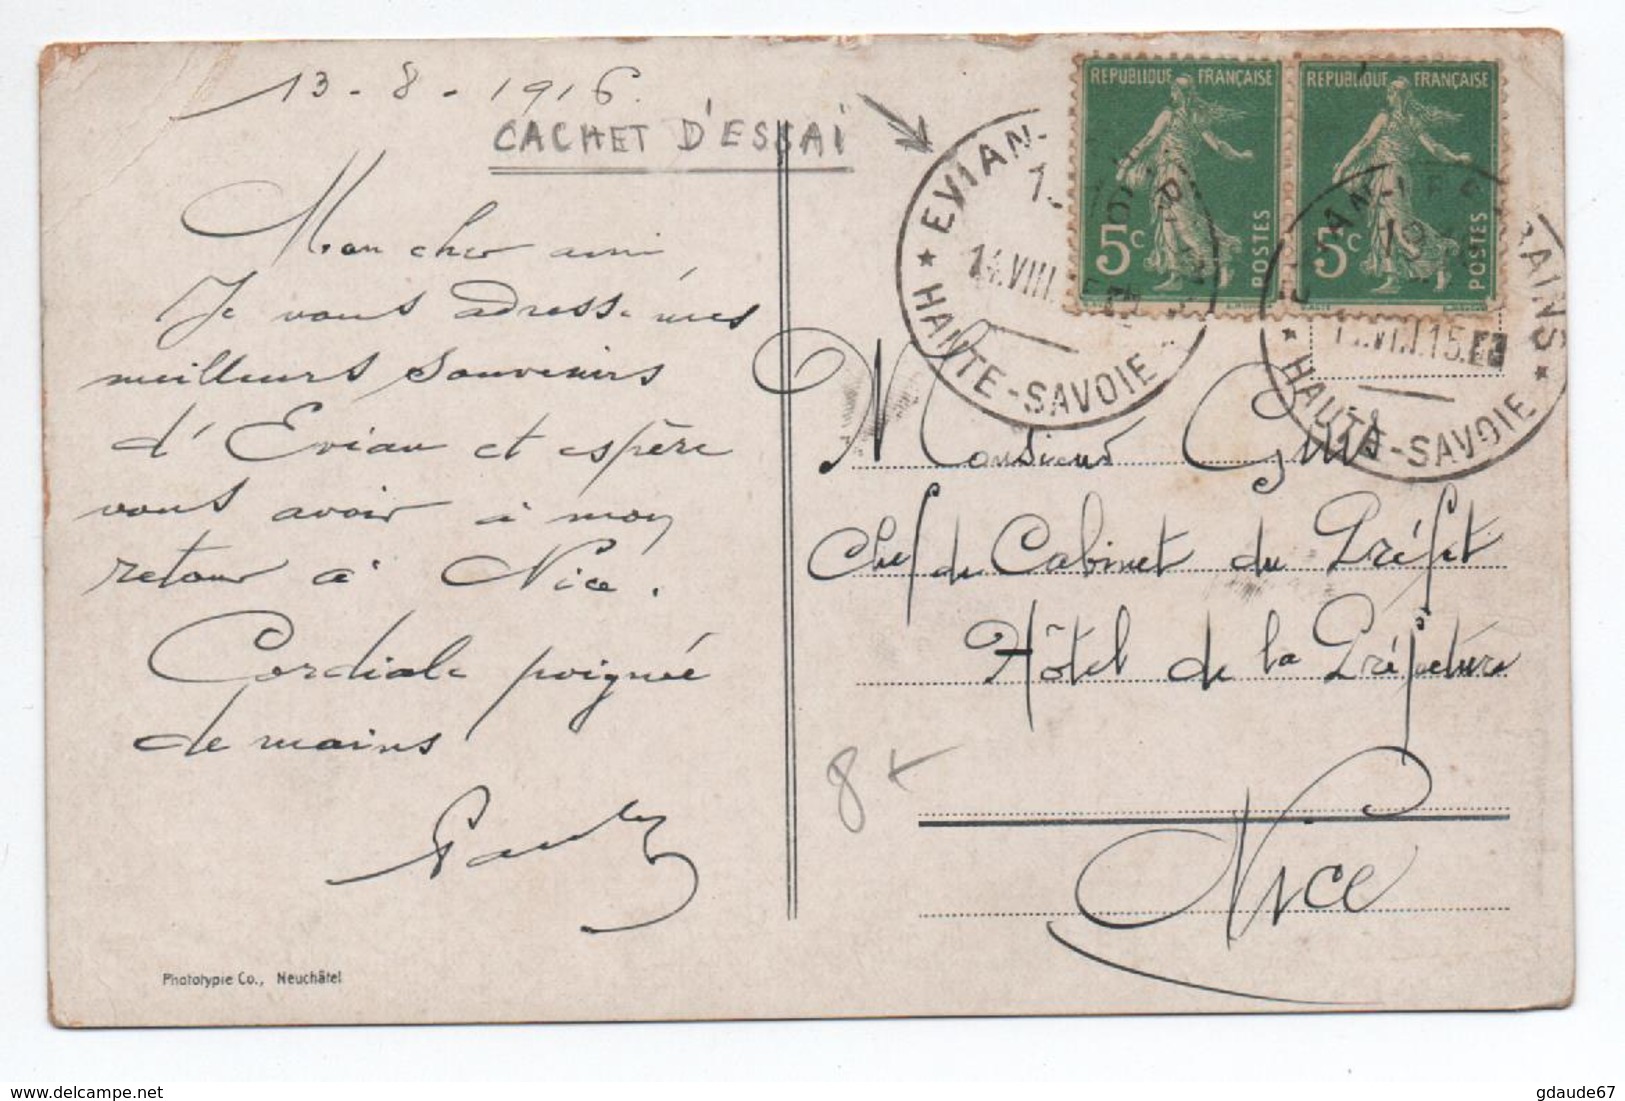 13-8-1916.
CACHET D'ESSAI
Mon cher ami
Je vous adresse mes
meilleurs souvenirs
d'Evian et espère
vous avoir à mon
retour à Nice.
Cordiale poignée
de mains
Phototypie Co., Neuchâtel
REPUBLIQUE FRANÇAISE
5c
POSTES
REPUBLIQUE FRANÇAISE
5c
POSTES
EVIAN-
14.VIII.
HAUTE-SAVOIE
BAINS
VIII.15
HAUTE-SAVOIE
Monsieur
Chef de Cabinet du Préfet
Hôtel de la Préfecture
8+
Nice
gdaude67